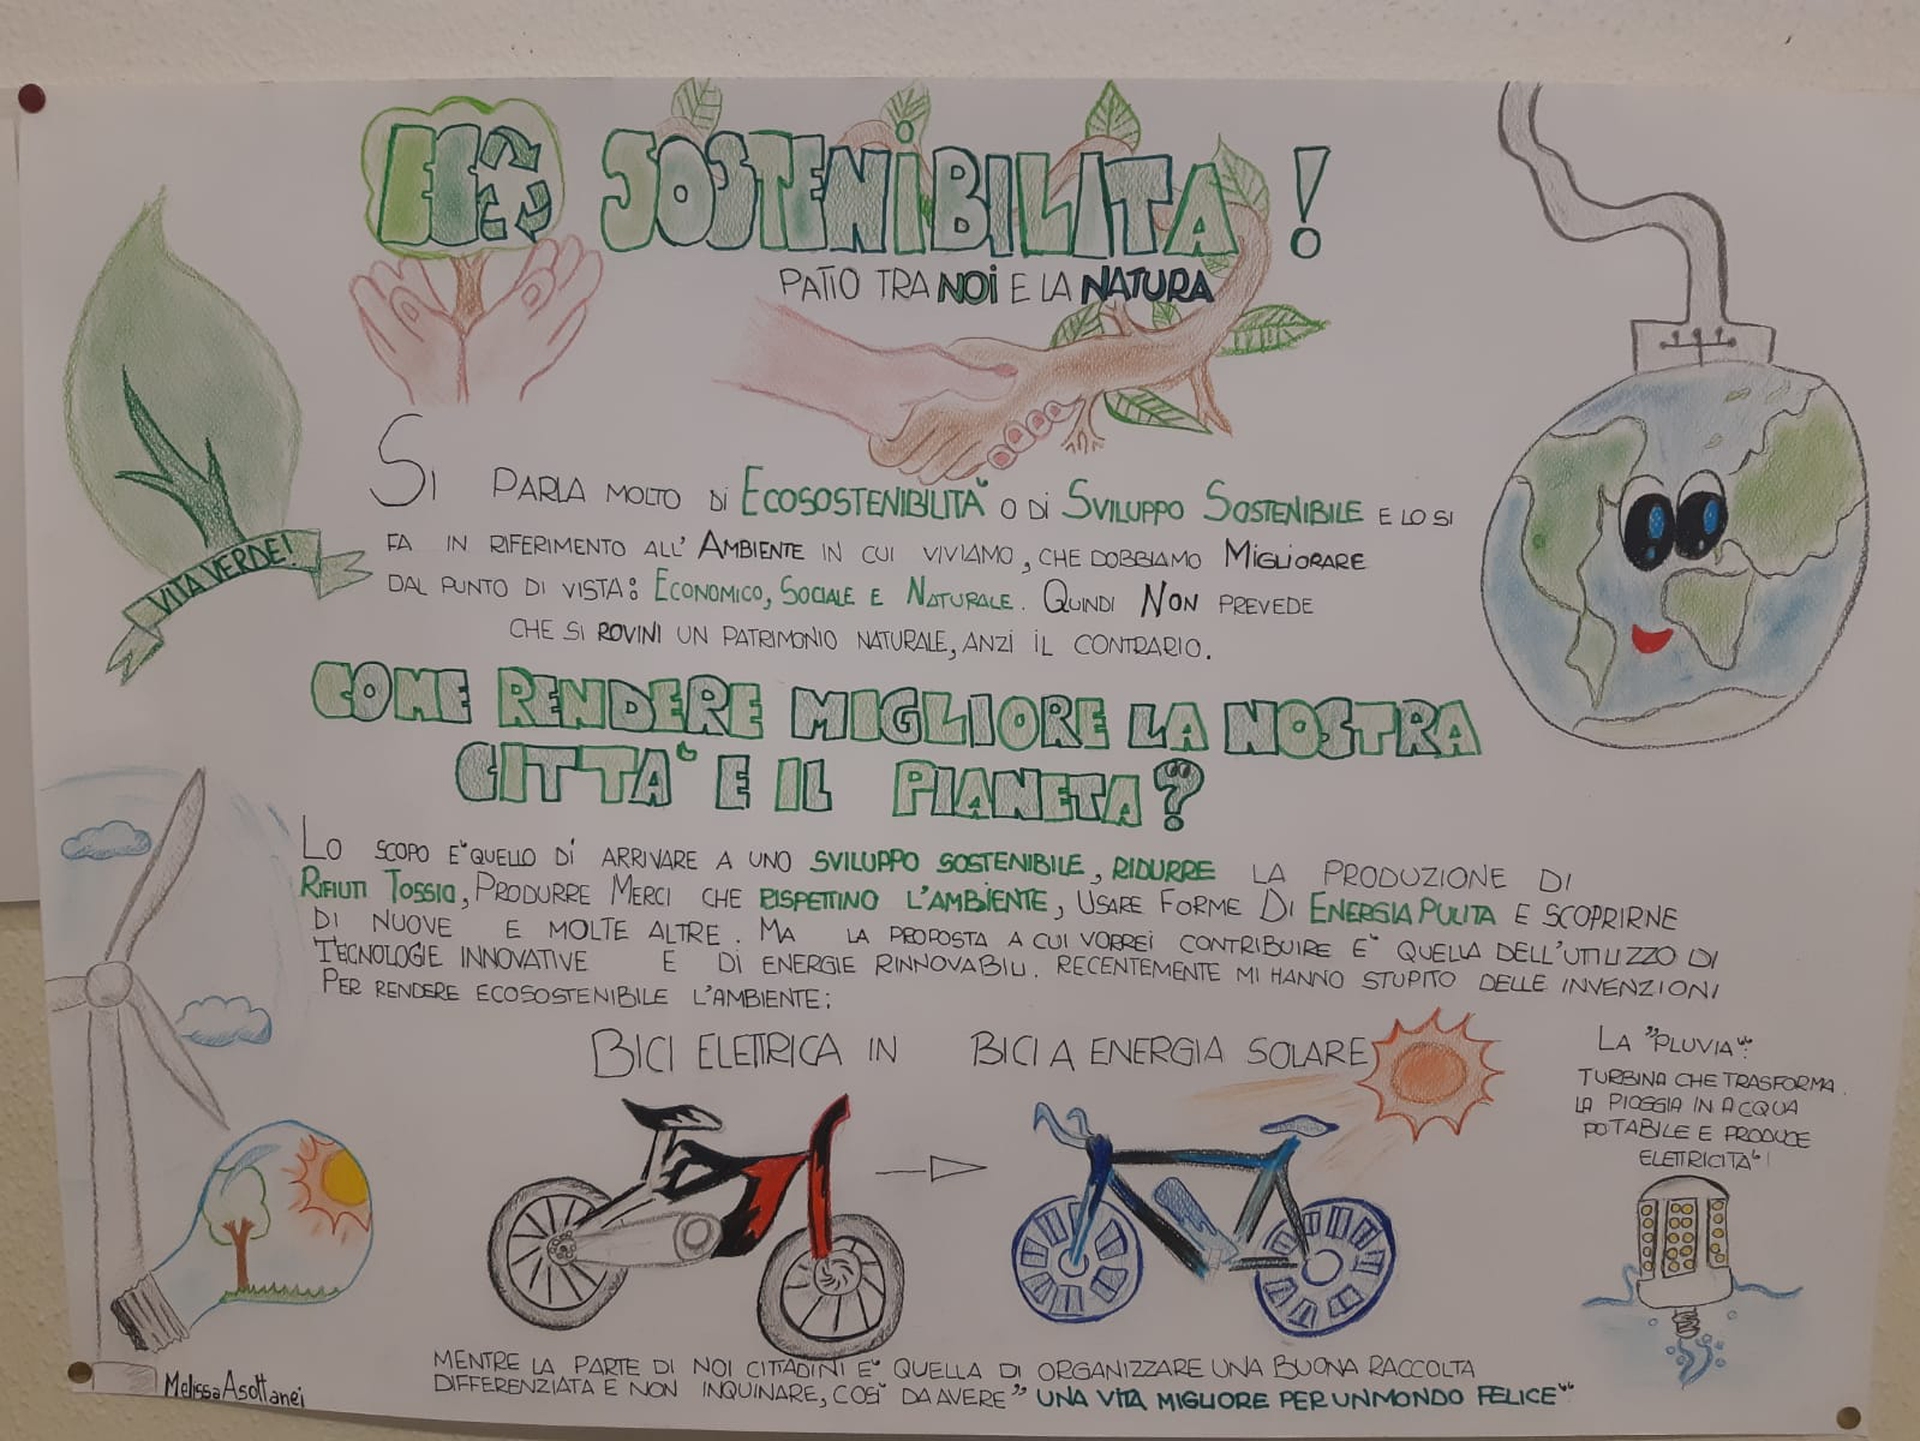 ECO SOSTENiBILITA !
PATTO TRA NOi E LA NATURA
VITA VERDE!
SI PARLA MOLTO Di ECOSOSTENIBILITA' O Di SVILUPPO SOSTENIBILE E LO SI
FA IN RIFERIMENTO ALL' AMBIENTE IN CUI VIVIAMO, CHE DOBBIAMO MIGLIORARE
DAL PUNTO DI VISTA: ECONOMICO, SOCIALE E NATURALE. QUINDI NON PREVEDE
CHE SI ROVINI UN PATRIMONIO NATURALE, ANZI IL CONTRARIO.
COME RENDERE MIGLIORE LA NOSTRA
CITTA' E IL PIANETA?
LO SCOPO E' QUELLO Di ARRIVARE A UNO SVILUPPO SOSTENIBILE, RIDURRE LA PRODUZIONE DI
RIFIUTI TOSSICI, PRODURRE MERCI CHE RISPETTINO L'AMBIENTE, USARE FORME DI ENERGIA PULITA E SCOPRIRNE
DI NUOVE E MOLTE ALTRE. MA LA PROPOSTA A CUI VORREI CONTRIBUIRE E' QUELLA DELL'UTILIZZO DI
TECNOLOGIE INNOVATIVE E DI ENERGIE RINNOVABILI. RECENTEMENTE MI HANNO STUPITO DELLE INVENZIONI
PER RENDERE ECOSOSTENIBILE L'AMBIENTE:
BICI ELETTRICA IN BICI A ENERGIA SOLARE
LA "PLUVIA":
TURBINA CHE TRASFORMA
LA PIOGGIA IN ACQUA
POTABILE E PRODUCE
ELETTRICITA'!
MENTRE LA PARTE DI NOI CITTADINI E' QUELLA DI ORGANIZZARE UNA BUONA RACCOLTA
DIFFERENZIATA E NON INQUINARE, COSI' DA AVERE "UNA VITA MIGLIORE PER UN MONDO FELICE"
Melissa Asoltanei